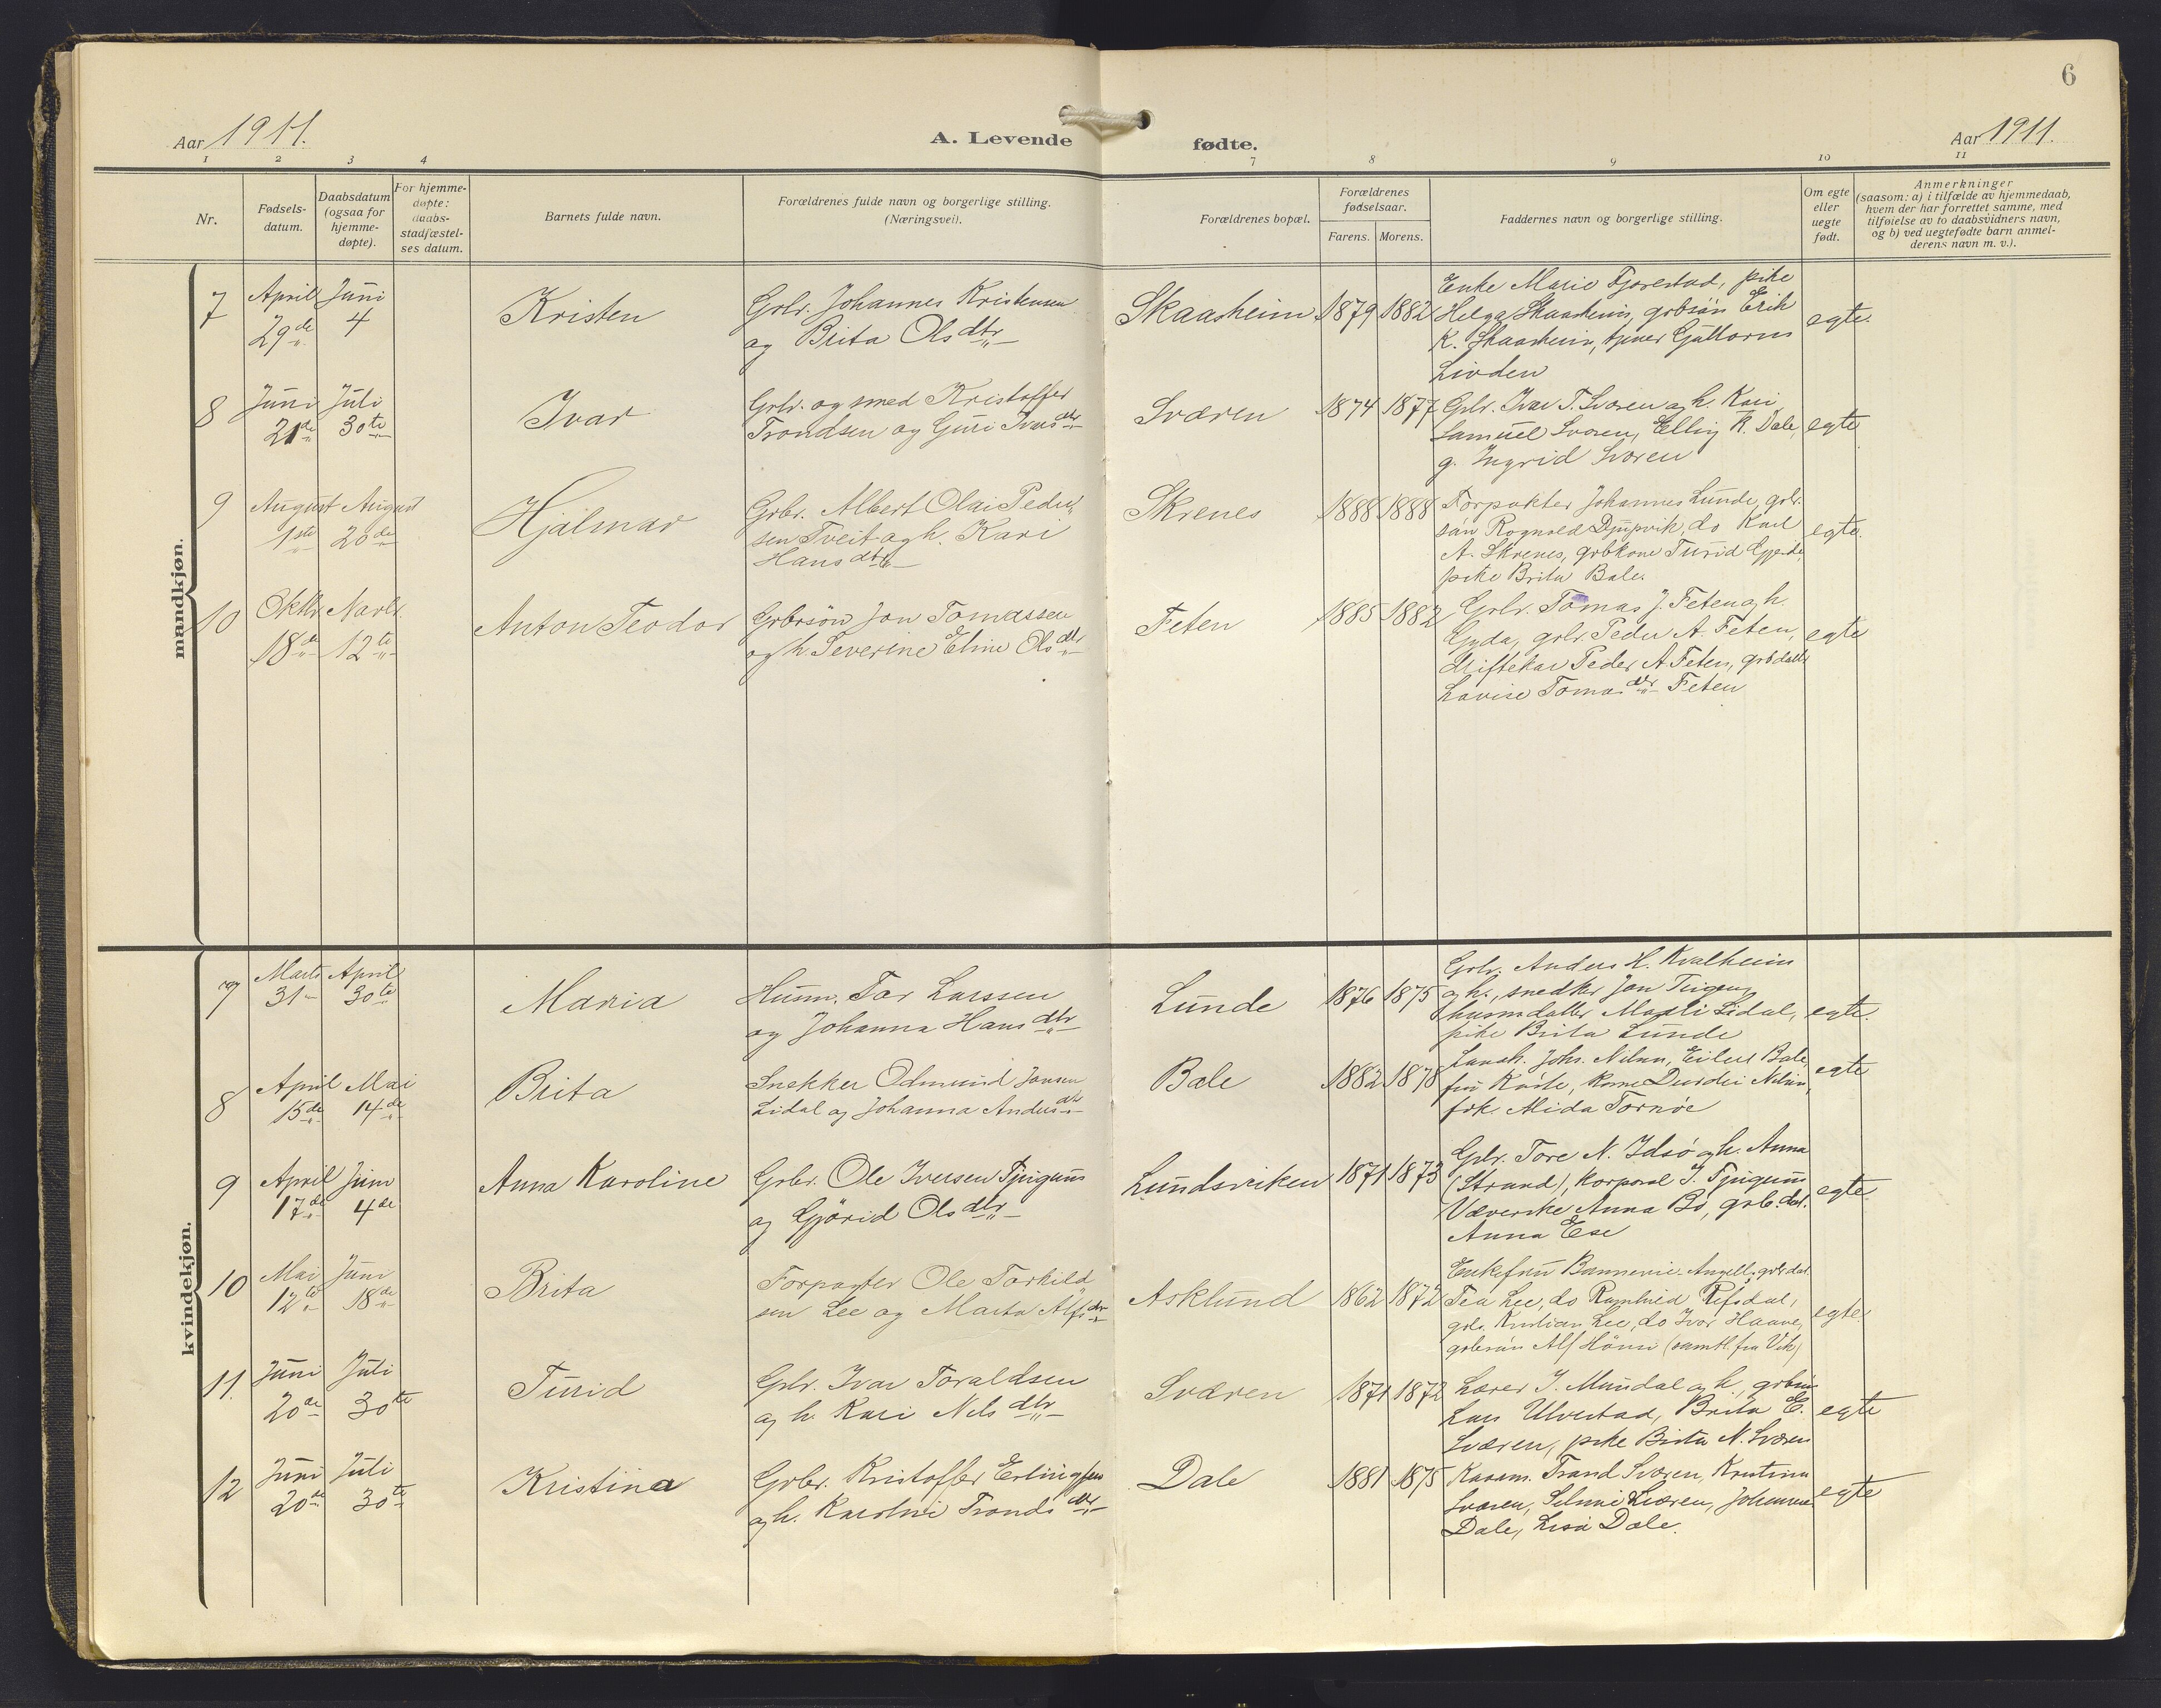 6
Aar 1911.
A. Levende
fødte.
Aar 1911.
1 2 3 4 7 8 9 10 11
Nr.
Fødsels-
datum.
Daabsdatum
(ogsaa for
hjemme-
døpte).
For hjemme-
døpte:
daabs-
stadfæstel-
ses datum.
Barnets fulde navn.
Forældrenes fulde navn og borgerlige stilling.
(Næringsvei).
Forældrenes bopæl.
Forældrenes
fødselsaar.
Farens. Morens.
Faddernes navn og borgerlige stilling.
Om egte
eller
uegte
født.
Anmerkninger
(saasom: a) i tilfælde av hjemmedaab,
hvem der har forrettet samme, med
tilføielse av to daabsvidners navn,
og b) ved uegtefødte barn anmel-
derens navn m. v.).
mandkjøn.
7
April
29de
Juni
4
Kristen
Grbr. Johannes Kristensen
og Brita Olsdtr
Skaasheim
1879 1882
Enke Marie Fjørestad, pike
Helga Skaasheim, grbsön Erik
K. Skaasheim, tjener
egte.
8
Juni
21de
Juli
30te
Ivar
Grbr. og smed Kristoffer
Trondsen og Guri Ivarsdtr
Sværen
1874 1877
Grbr. Ivar T. Sværen og h. Kari,
Samuel Sværen, Elling K. Dale,
g. Ingrid Sværen
egte
9
August
1ste
August
20de
Hjalmar
Grbr. Albert Olai Peder
sen Tveit og h. Kari
Hansdtr
Skrenes
1888 1888
Forpakter Johannes Lunde, grbr.
sön Rognald Djupvik, do Karl
A. Skrenes, grbkone Turid
pike Brita Bale.
egte.
10
Oktbr.
18de
Novbr.
12te
Anton Teodor
Grbrsön Jon Tomassen
og h. Severine Eline Olsdtr
Feten
1885 1882
Grbr. Tomas J. Feten og h.
Gyda, grbr. Peder A. Feten,
driftekar Peder A. Feten, grbdatter
Lovise Tomasdtr Feten
egte
kvindekjøn.
7
Marts
31
April
30te
Maria
Husm. Tor Larssen
og Johanna Hansdtr
Lunde
1876 1875
Grbr. Anders H. Kvalheim
og h., snedker Jon
husmdatter Marti Lidal,
pike Brita Lunde
egte.
8
April
15de
Mai
14de
Brita
Snekker Odmund Jonsen
Lidal og Johanna Andersdtr
Bale
1882 1878
Johs. Nilsen, Eilert Bale,
fru
frk. Alida Tornöe
egte
9
April
17de
Juni
4de
Anna Karoline
Grbr. Ole Iversen Tjugum
og Gjörid Olsdtr
Lundsviken
1871 1873
Grbr. Tore N. Idsö og h. Anna
(Strand), Korporal I. Tjugum
Væverske Anna Bö, grb.dat.
Anna Ese
egte.
10
Mai
12te
Juni
18de
Brita
Forpagter Ole Torkild
sen Lee og Marta Alfsdtr
Asklund
1862 1872
Enkefru Angell, grbrdat
Tea Lee, do Ragnhild Refsdal,
grbr. Kristian Lee, do Ivar Haave,
grbrsön Alf Hönsi (samtl. fra Vik)
egte.
11.
Juni
20de
Juli
30te
Turid
Grbr. Ivar Toraldsen
og h. Kari Nilsdtr
Sværen
1871 1872
Lærer J. Mundal og h., grbsön
Lars Ulvestad, Brita E.
Sværen, pike Brita N. Sværen
egte
12
Juni
20de
Juli
30te
Kristina
Grbr. Kristoffer Erlingsen
og h. Karoline Trondsdtr
Dale
1881 1875
Trond Sværen, Kristina
Sværen, Selmine Sværen, Johannes
Dale, Lisa Dale.
egte